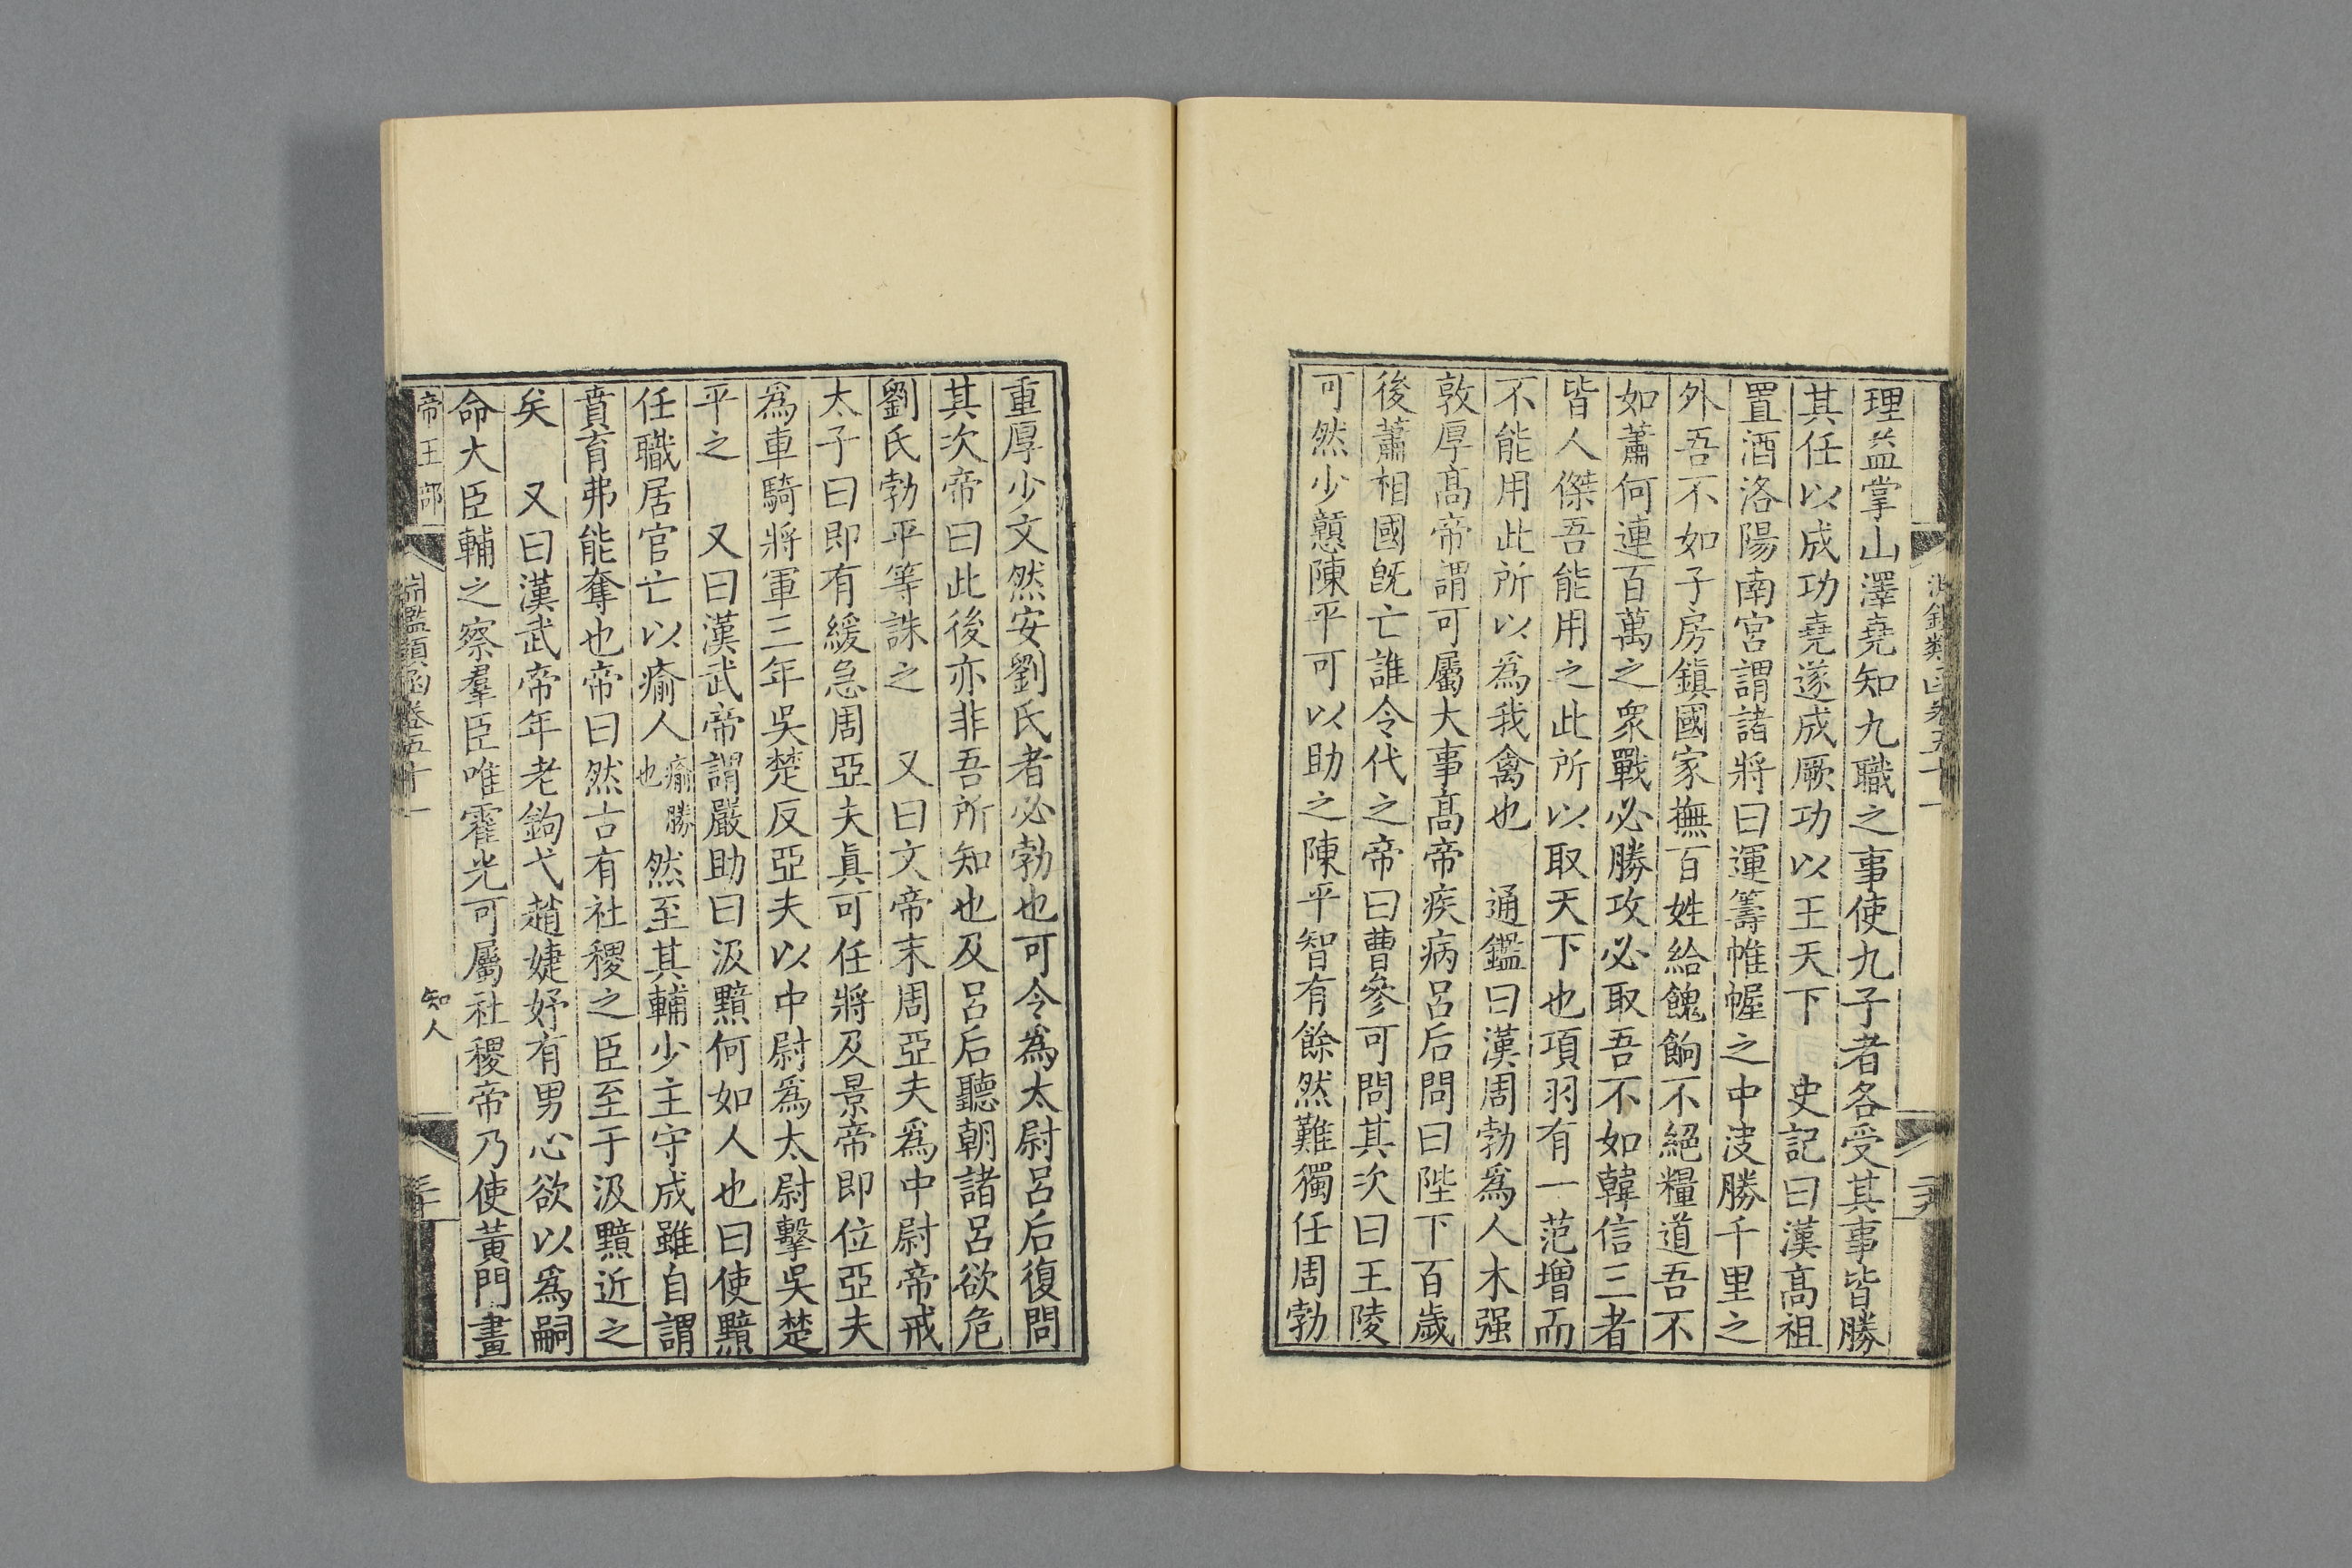 理益掌山澤堯知九職之事使九子者各受其事皆勝
其任以成功堯遂成厥功以王天下　史記曰漢髙祖
置酒洛陽南宮謂諸將曰運籌帷幄之中决勝千里之
外吾不如子房鎮國家撫百姓給餽餉不絕糧道吾不
如蕭何連百萬之衆戰必勝攻必取吾不如韓信三者
皆人傑吾能用之此所以取天下也項羽有一范增而
不能用此所以爲我禽也　通鑑曰漢周勃爲人木强
敦厚髙帝謂可屬大事髙帝疾病呂后問曰陛下百歲
後蕭相國旣亡誰令代之帝曰曹參可問其次曰王陵
可然少戇陳平可以助之陳平智有餘然難獨任周勃
重厚少文然安劉氏者必勃也可令爲太尉呂后復問
其次帝曰此後亦非吾所知也及呂后聽朝諸呂欲危
劉氏勃平等誅之　又曰文帝末周亞夫爲中尉帝戒
太子曰即有緩急周亞夫眞可任將及景帝即位亞夫
爲車騎將軍三年吳楚反亞夫以中尉爲太尉擊吳楚
平之　又曰漢武帝謂嚴助曰汲黯何如人也曰使黯
任職居官亡以瘉人瘉勝也然至其輔少主守成雖自謂
賁育弗能奪也帝曰然古有社稷之臣至于汲黯近之
矣　又曰漢武帝年老鉤弋趙婕妤有男心欲以爲嗣
命大臣輔之察羣臣唯霍光可屬社稷帝乃使黃門畫
帝王部　淵鑑類函卷五十一　知人